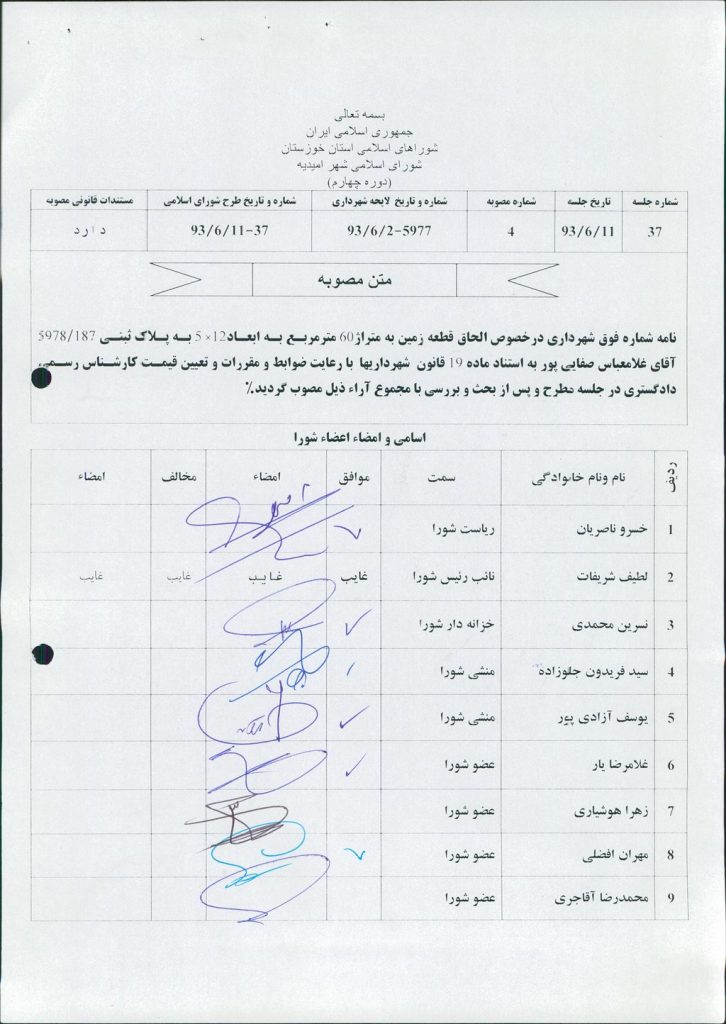 بسمه تعالی
جمهوری اسلامی ایران
شوراهای اسلامی استان خوزستان
شورای اسلامی شهر امیدیه
(دوره چهارم)
شماره جلسه تاریخ جلسه شماره مصوبه شماره و تاریخ لایحه شهرداری شماره و تاریخ طرح شورای اسلامی مستندات قانونی مصوبه
37 93/6/11 4 93/6/2-5977 93/6/11-37 دارد
متن مصوبه
نامه شماره فوق شهرداری درخصوص الحاق قطعه زمین به متراژ60 مترمربع به ابعاد12×5 به پلاک ثبتی 5978/187
آقای غلامعباس صفایی پور به استناد ماده 19 قانون شهرداریها با رعایت ضوابط و مقررات و تعیین قیمت کارشناس رسمی
دادگستری در جلسه مطرح و پس از بحث و بررسی با مجموع آراء ذیل مصوب گردید.٪
اسامی و امضاء اعضاء شورا
ردیف نام ونام خانوادگی سمت موافق امضاء مخالف امضاء
1 خسرو ناصریان ریاست شورا
2 لطیف شریفات نائب رئیس شورا غایب غایب غایب غایب
3 نسرین محمدی خزانه دار شورا
4 سید فریدون جلوزاده منشی شورا
5 یوسف آزادی پور منشی شورا
6 غلامرضا یار عضو شورا
7 زهرا هوشیاری عضو شورا
8 مهران افضلی عضو شورا
9 محمدرضا آقاجری عضو شورا